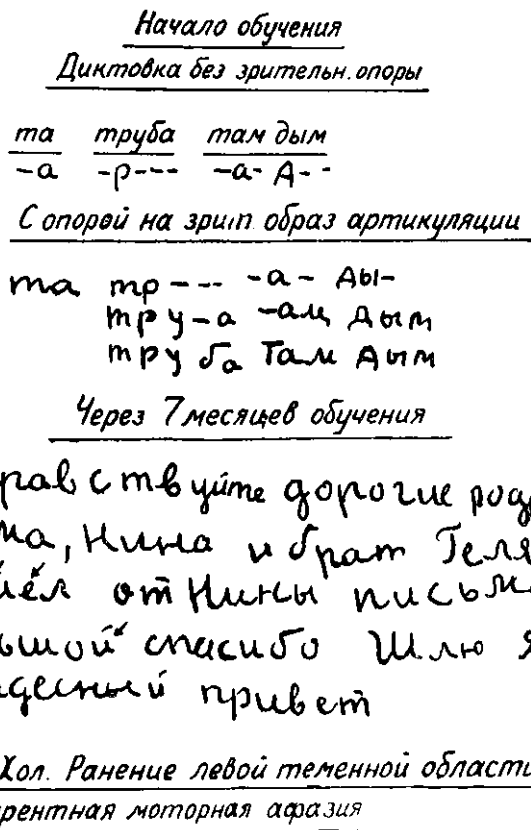 Начало обучения
Диктовка без зрительн. опоры
та труба там дым
-а -р--- -а- д--
С опорой на зрит. образ артикуляции
та тр--- -а- ды-
тру-а -ам дым
труба там дым
Через 7 месяцев обучения
равствуйте дорогие род
ма, Нина и брат Геля
от Нины письм
ьшой спасибо Шлю я
привет
Хол. Ранение левой теменной области
рентная моторная афазия